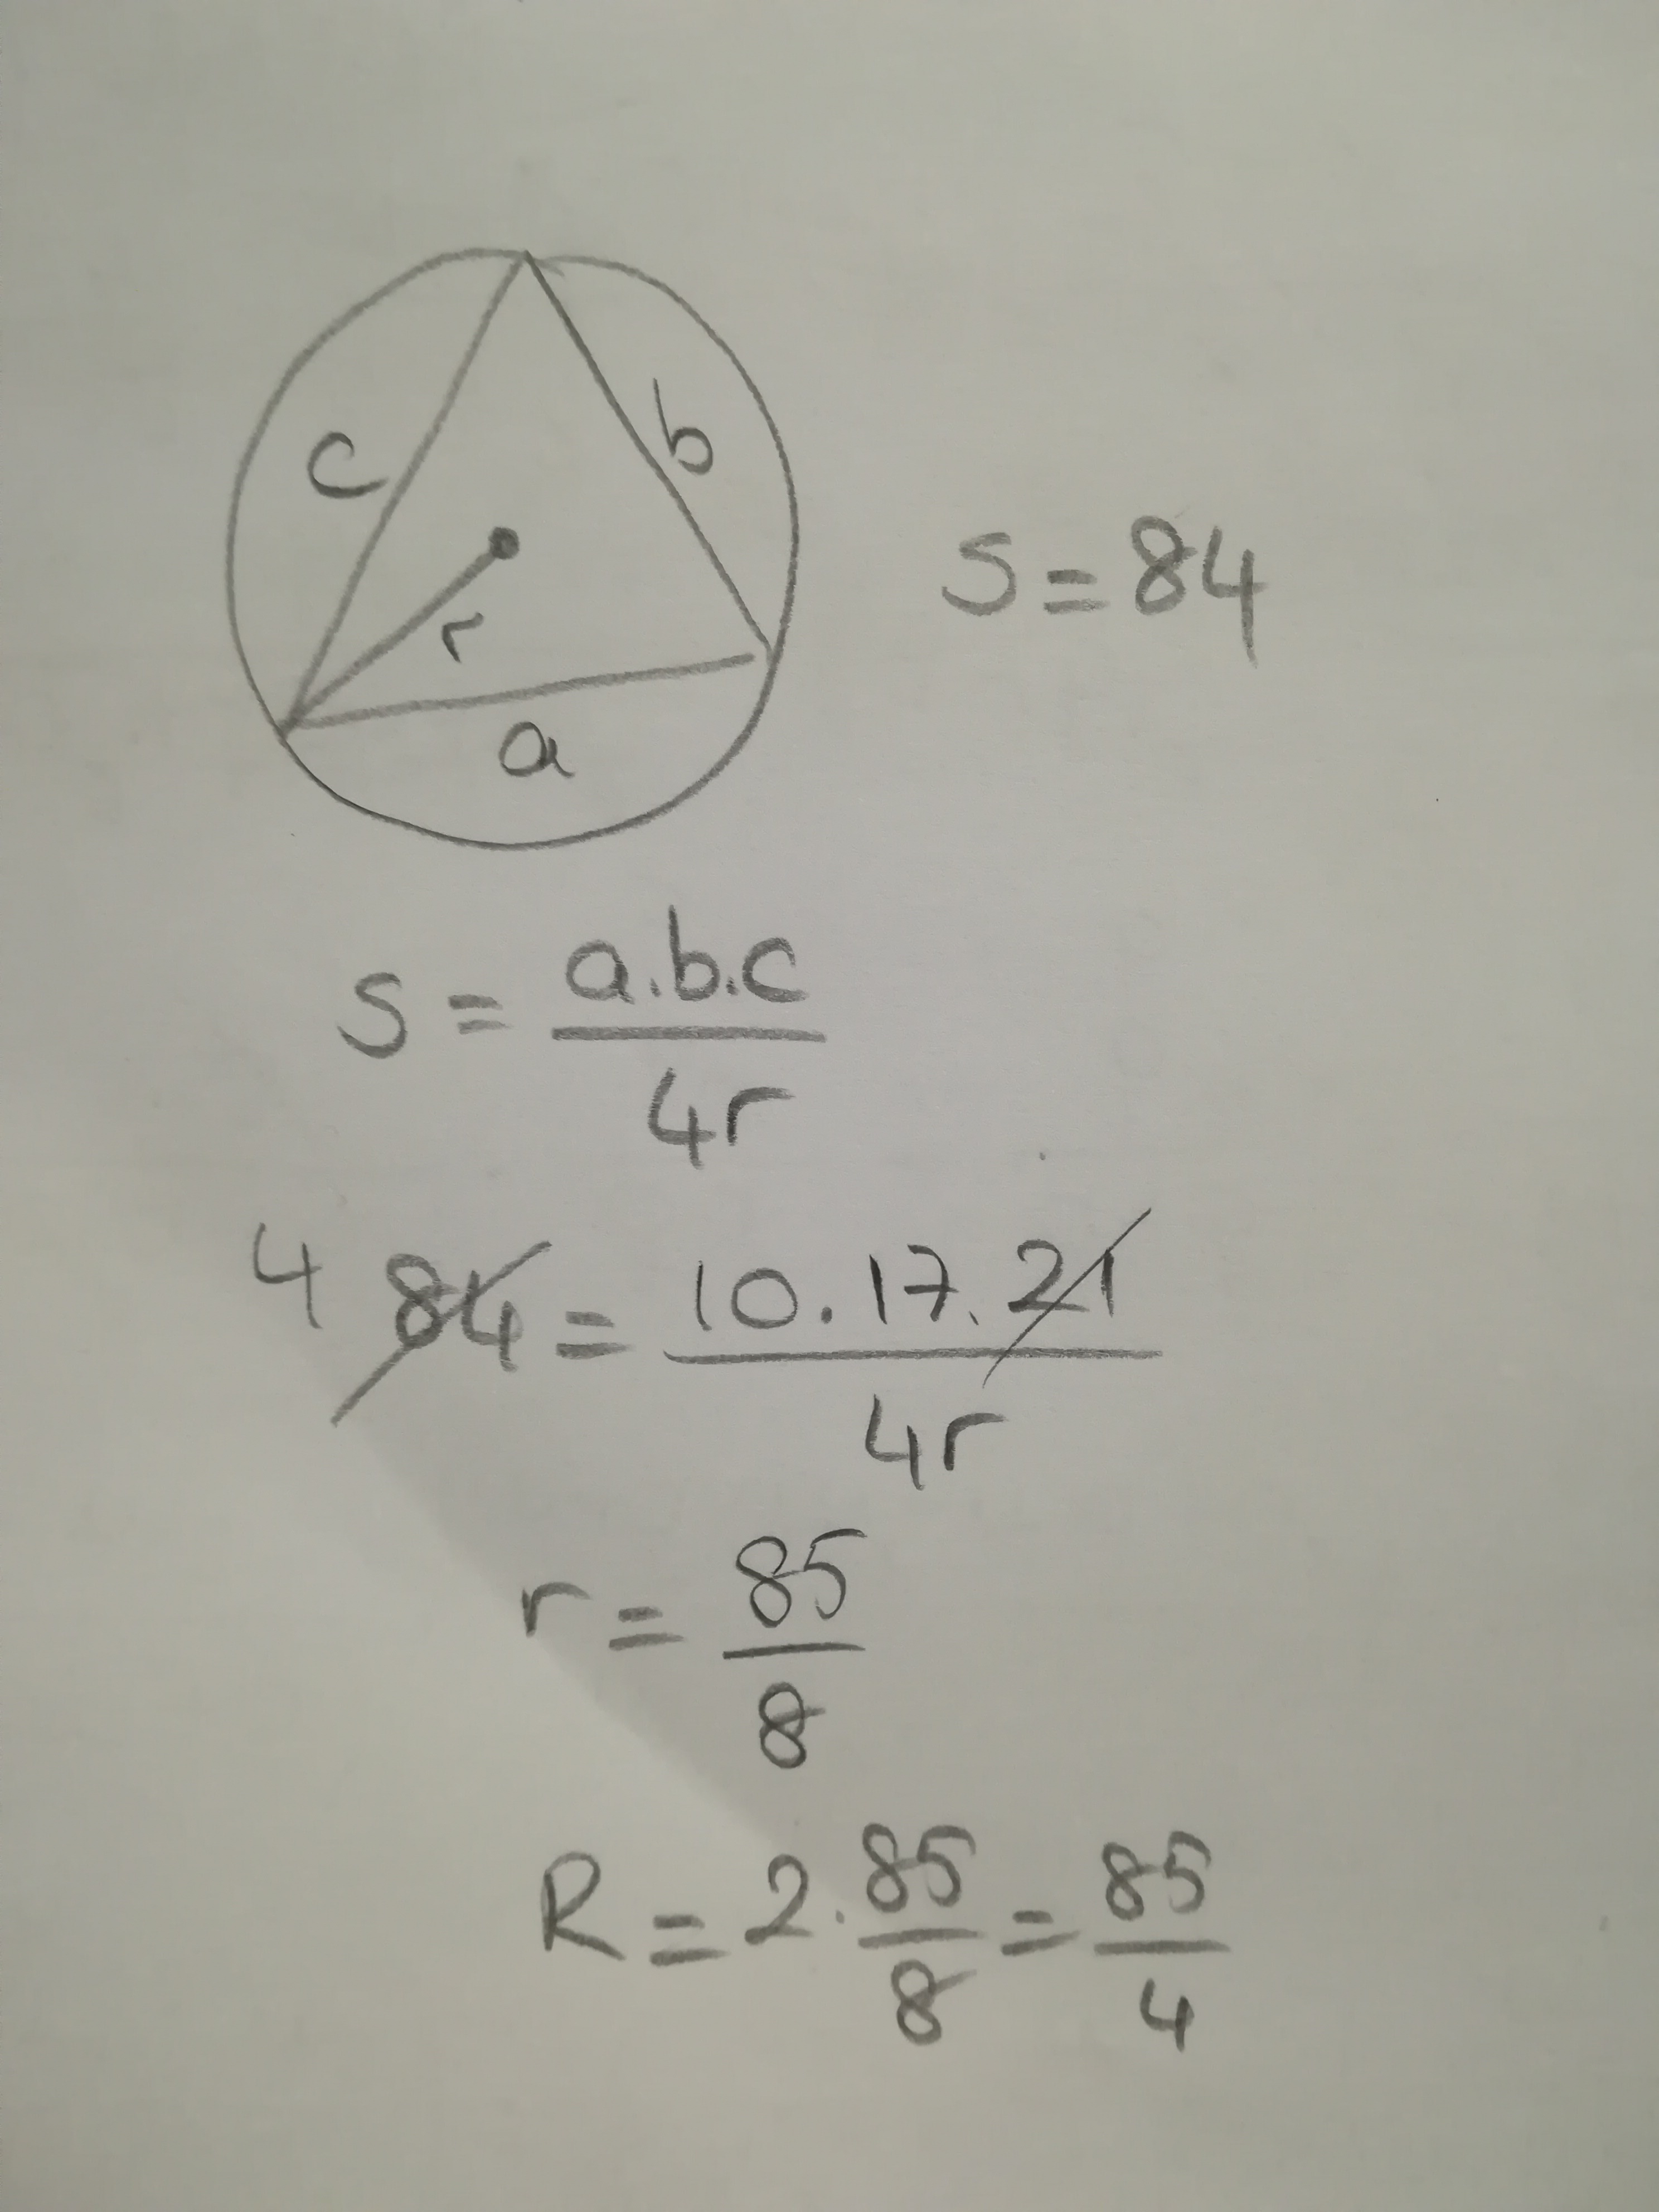 c
b
r
a
S = 84
S = a.b.c / 4r
4 84 = 10.17.21 / 4r
r = 85 / 8
R = 2. 85 / 8 = 85 / 4